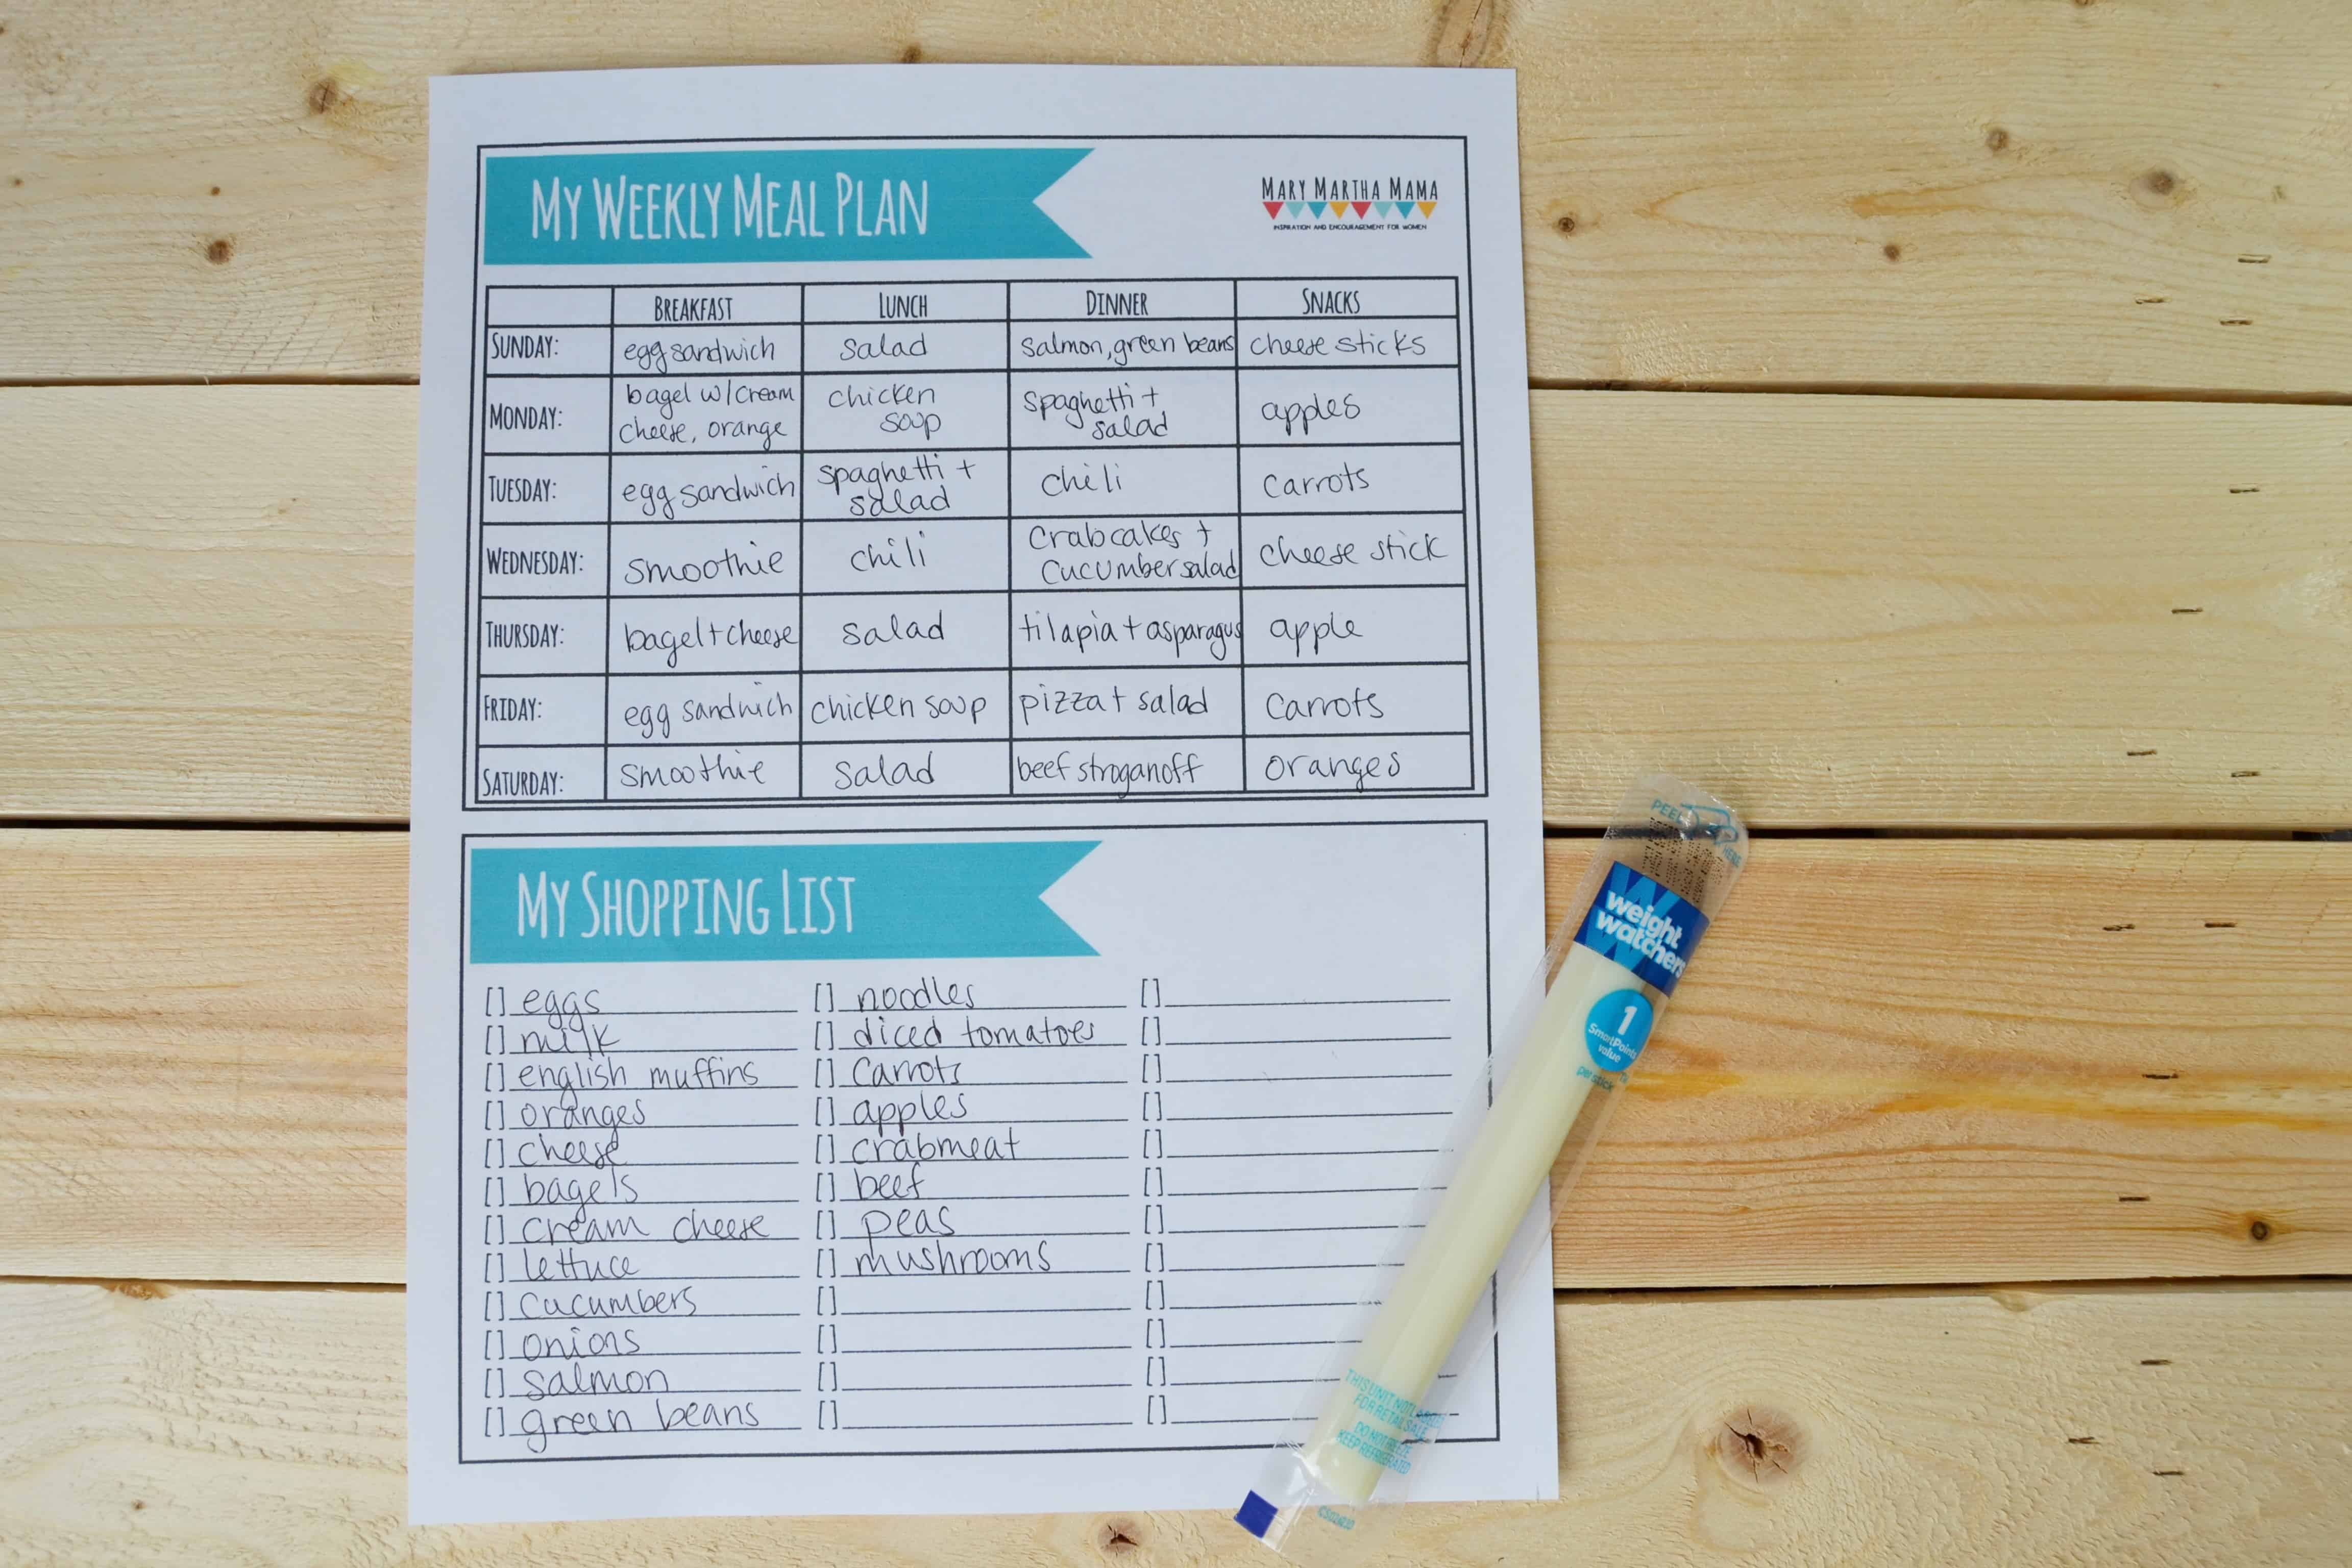 MY WEEKLY MEAL PLAN
MARY MARTHA MAMA
INSPIRATION AND ENCOURAGEMENT FOR WOMEN
BREAKFAST LUNCH DINNER SNACKS
SUNDAY: egg sandwich salad salmon, green beans cheese sticks
MONDAY: bagel w/cream cheese, orange chicken soup spaghetti + salad apples
TUESDAY: egg sandwich spaghetti + salad chili carrots
WEDNESDAY: smoothie chili crabcakes + cucumber salad cheese stick
THURSDAY: bagel + cheese salad tilapia + asparagus apple
FRIDAY: egg sandwich chicken soup pizza + salad carrots
SATURDAY: smoothie salad beef stroganoff oranges
MY SHOPPING LIST
[] eggs [] noodles []
[] milk [] diced tomatoes []
[] english muffins [] carrots []
[] oranges [] apples []
[] cheese [] crabmeat []
[] bagels [] beef []
[] cream cheese [] peas []
[] lettuce [] mushrooms []
[] cucumbers [] []
[] onions [] []
[] salmon [] []
[] green beans [] []
PEEL HERE
weight
watchers
1
SmartPoints
value
per stick
THIS UNIT NOT
FOR RETAIL SALE
KEEP REFRIGERATED